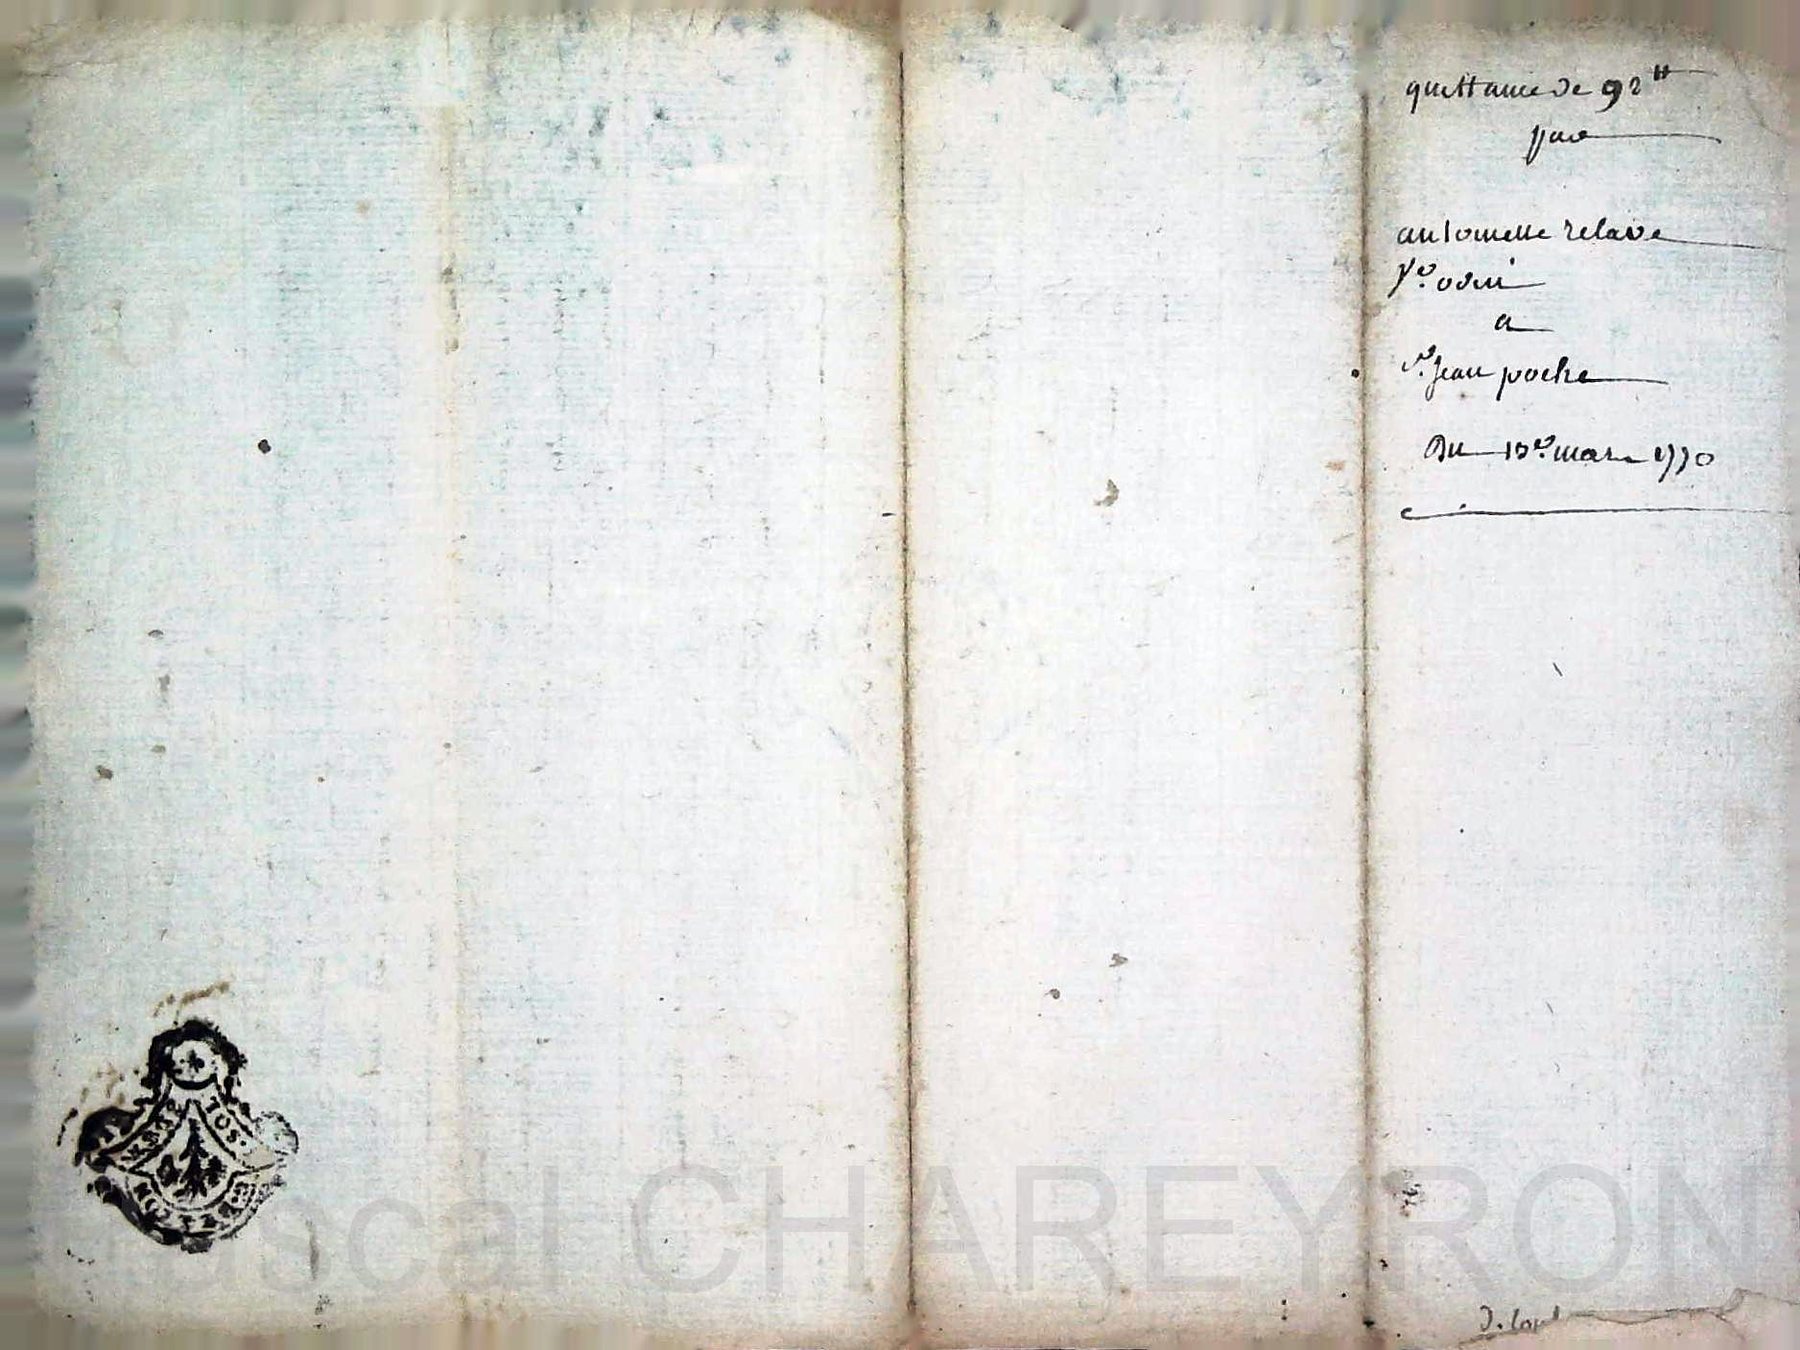 quittance de 92 ₶
par
antoinette relave
Ve. odin
a
Sr. Jean poche
Du 13e. mars 1770
DEUX SOLS
Pascal CHAREYRON